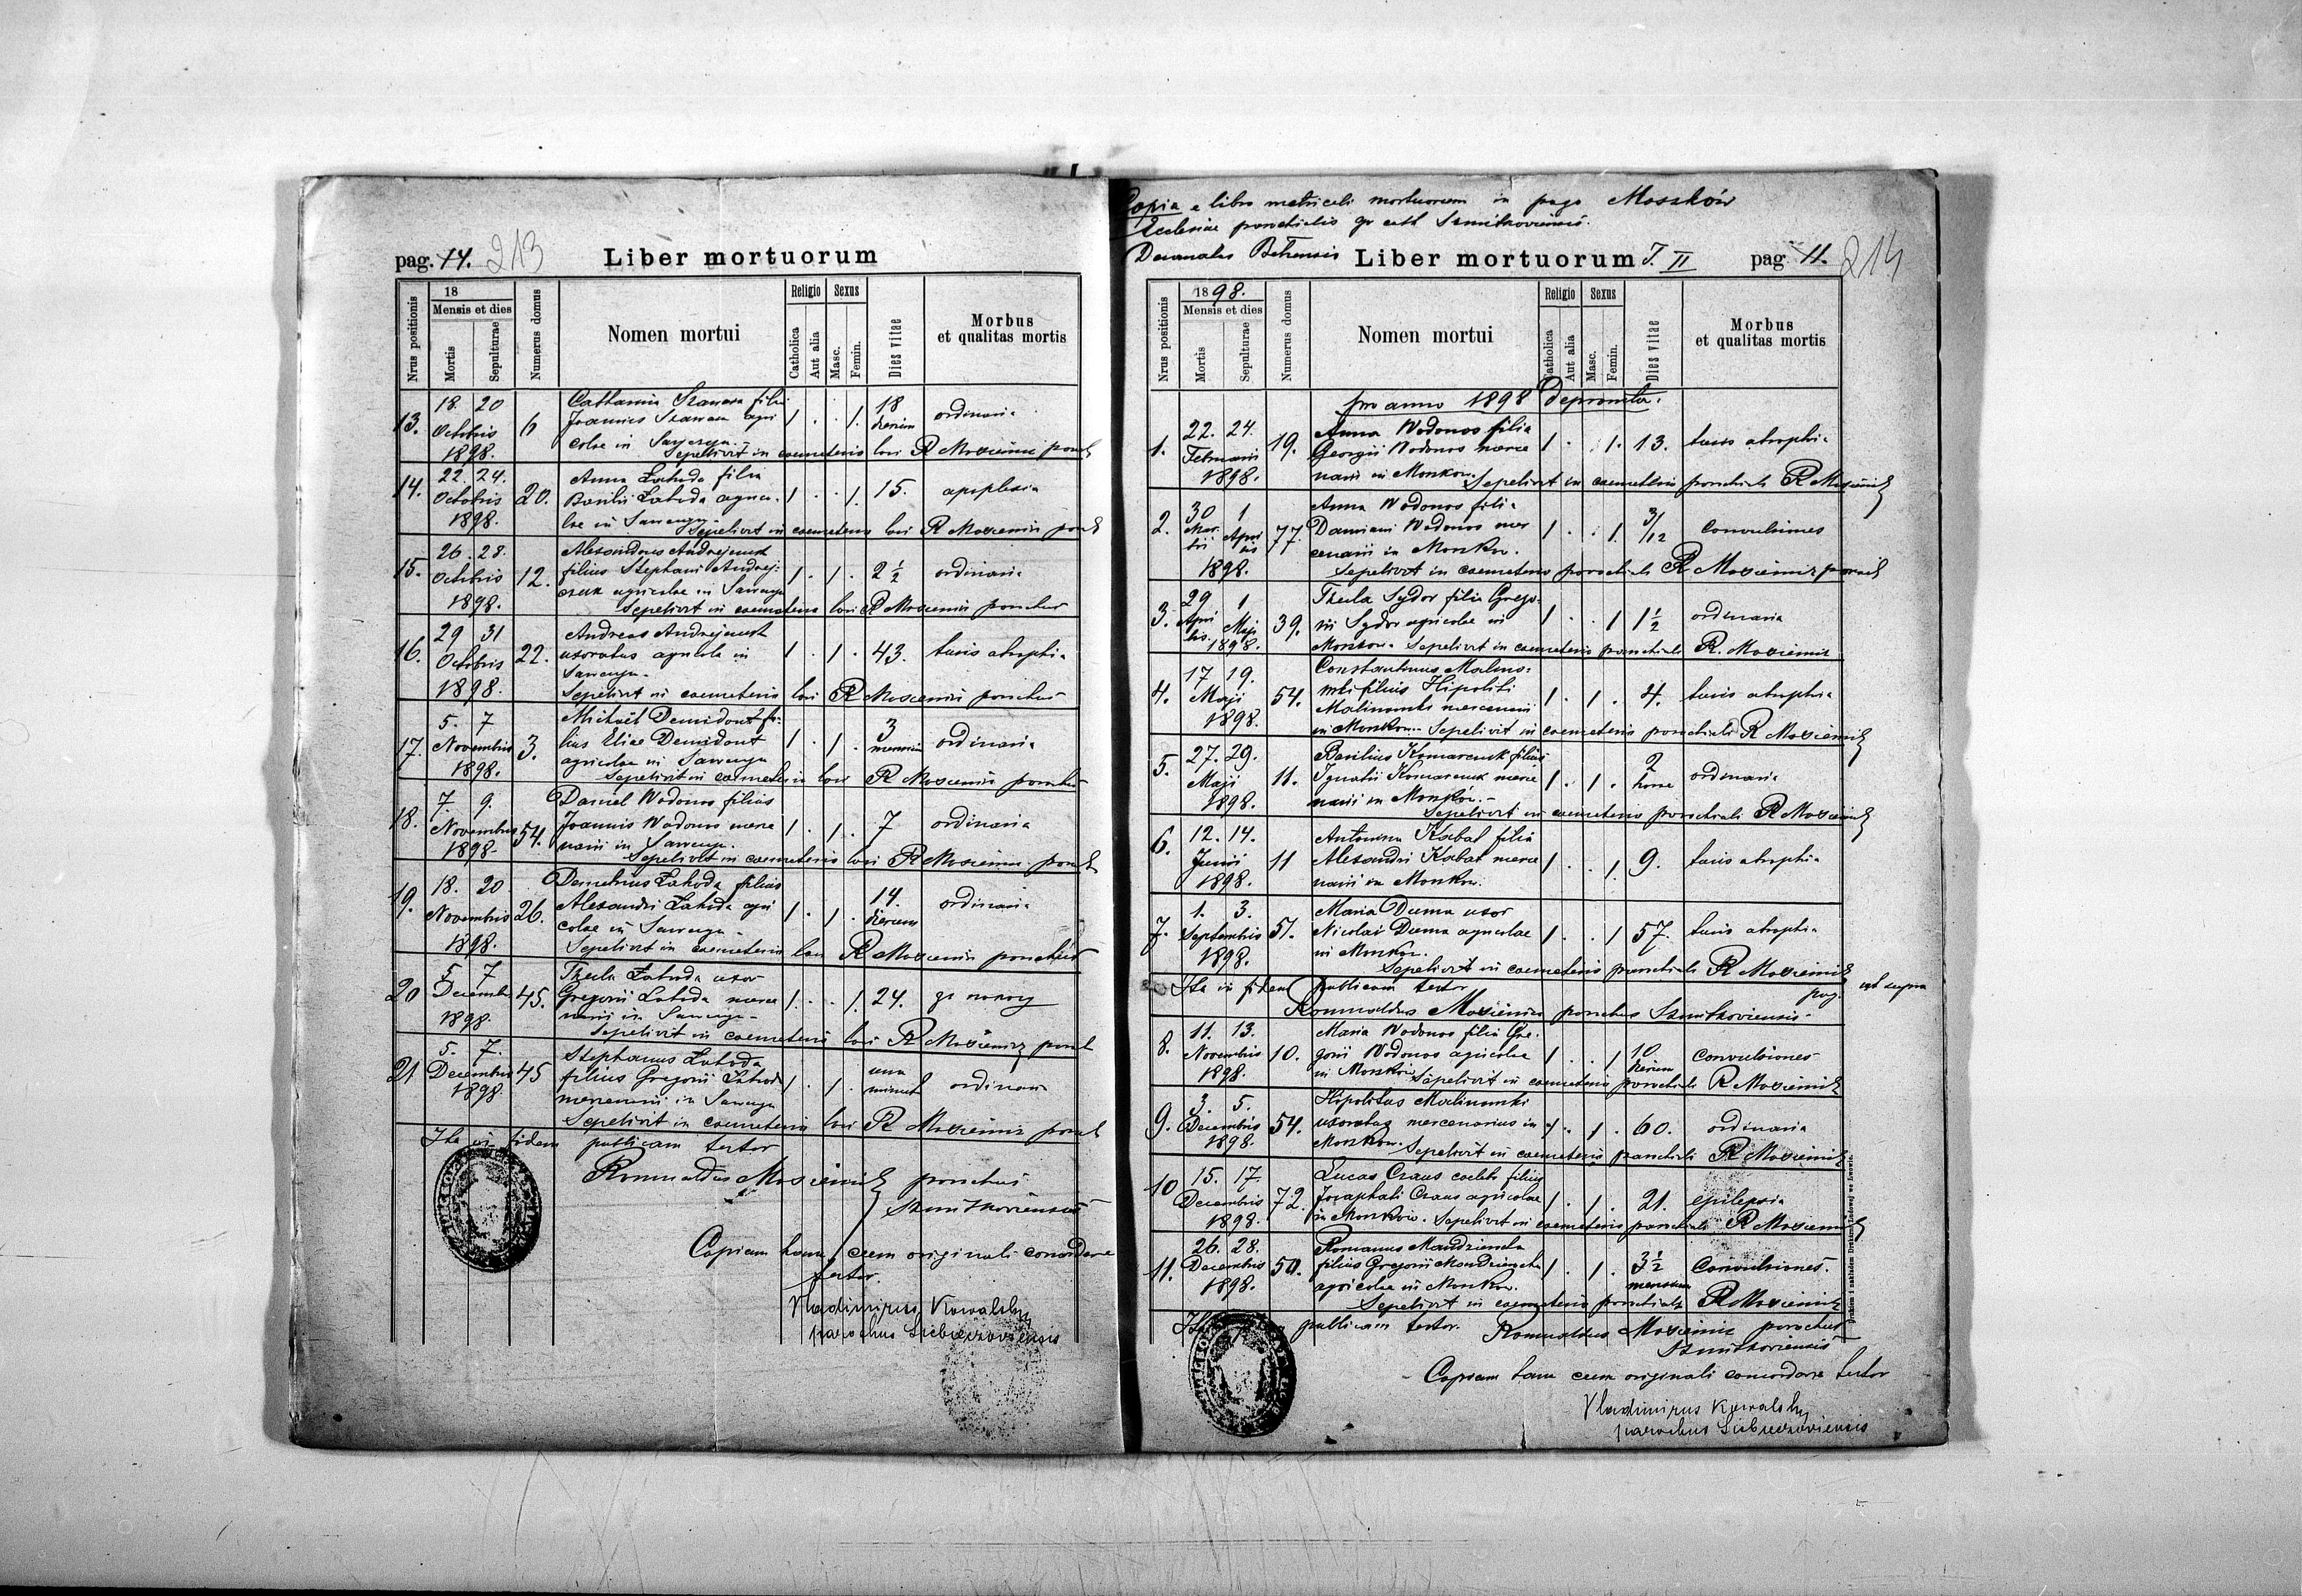 pag. 14. 213
Liber mortuorum
Nrus positionis
18
Mensis et dies
Mortis
Sepulturae
Numerus domus
Nomen mortui
Religio
Catholica
Aut alia
Sexus
Masc.
Femin.
Dies vitae
Morbus
et qualitas mortis
13. 18. 20 Octobris 1898. 6
Catharina filia
Joannis agri
colae in
1 . . 1. 18 dierum ordinaria
Sepelivit in coemeterio loci R Mosiewicz paroch
14. 22. 24. Octobris 1898. 20.
Anna Lahoda filia
Basilii Lahoda agrico-
lae in
1 . . 1. 15. apoplexia
Sepelivit in coemeterio loci R Mosiewicz paroch
15. 26. 28. Octobris 1898. 12.
Alexandrus Andrejczuk
filius Stephani Andrej-
czuk agricolae in
1 . 1 . 2 1/2 ordinaria
Sepelivit in coemeterio loci R Mosiewicz parochus
16. 29 31 Octobris 1898. 22.
Andreas Andrejczuk
uxoratus agricola in
1 . 1 . 43. tusis atrophia
Sepelivit in coemeterio loci R Mosiewicz parochus
17. 5. 7 Novembris 1898. 3.
Michaël Demidont fi-
lius Eliae Demidont
agricolae in
1 . 1 . 3 mensium ordinaria
Sepelivit in coemeterio loci R Mosiewicz parochus
18. 7. 9. Novembris 1898. 54.
Daniel Wodonos filius
Joannis Wodonos merce
narii in
1 . 1 . 7 ordinaria
Sepelivit in coemeterio loci R Mosiewicz paroch
19. 18. 20. Novembris 1898. 26.
Demetrius Lahoda filius
Alexandri Lahoda agri
colae in
1 . 1 . 14. dierum ordinaria
Sepelivit in coemeterio loci R Mosiewicz parochus
20 5 7 Decembris 1898. 45.
Thecla Lahoda uxor
Gregorii Lahoda merce
narii in
1 . . 1. 24.
Sepelivit in coemeterio loci R Mosiewicz paroch
21 5. 7. Decembris 1898 45
Stephanus Lahoda
filius Gregorii Lahoda
mercenarii in
1 . 1 . una minut ordinaria
Sepelivit in coemeterio loci R Mosiewicz paroch
Ita in fidem publicam testor
Romualdus Mosiewicz parochus
Szmitkoviensis
Copiam hanc cum originali concordare
testor.
Vladimirus Kowalsky
parochus
Copia e libro metricali mortuorum in pago Moszków
Ecclesiae parochialis gr cath Szmitkoviensis.
Decanatus Belzensis
Liber mortuorum T. II
pag. 11. 214
Nrus positionis
1898.
Mensis et dies
Mortis
Sepulturae
Numerus domus
Nomen mortui
Religio
Catholica
Aut alia
Sexus
Masc.
Femin.
Dies vitae
Morbus
et qualitas mortis
pro anno 1898 deprompta.
1. 22. 24. Februarii 1898. 19.
Anna Wodonos filia
Georgii Wodonos merce
narii in Moszkow.
1 . . 1. 13. tusis atrophia
Sepelivit in coemeterio parochiali R Mosiewicz
2. 30 1 Martii Aprilis 1898. 77.
Anna Wodonos filia
Damiani Wodonos mer
cenarii in Moszkow.
1 . . 1. 3/12 convulsiones
Sepelivit in coemeterio parochiali R Mosiewicz paroch
3. 29 1 Aprilis. Maji 1898. 39.
Thecla Sydor filia Grego-
rii Sydor agricolae in
Moszkow.
1 . . 1 1 1/2 ordinaria
Sepelivit in coemeterio parochiali R. Mosiewicz
4. 17 19. Maji 1898. 54.
Constantinus Malinow-
ski filius Hipoliti
Malinowski mercenarii
in Moszkow.
1 . 1 . 4. tusis atrophia
Sepelivit in coemeterio parochiali R Mosiewicz
5. 27. 29. Maji 1898. 11.
Basilius Komarczuk filius
Ignatii Komarczuk merce
narii in Moszków.
1 . 1 . 2 horae ordinaria
Sepelivit in coemeterio parochiali R Mosiewicz
6. 12. 14. Junii 1898. 11
Antonina Kabat filia
Alexandri Kabat merce
narii in Moszkow.
1 . . 1 9. tusis atrophia
7. 1. 3. Septembris 1898. 51.
Maria Duma uxor
Nicolai Duma agricolae
in Moszkow.
1 . . 1 57. tusis atrophia
Sepelivit in coemeterio parochiali R Mosiewicz
Ita in fidem publicam testor pag. ut supra
Romualdus Mosiewicz parochus Szmitkoviensis
8. 11. 13. Novembris 1898. 10.
Maria Wodonos filia Gre-
gorii Wodonos agricolae
in Moszkow
1 . . 1 10 dierum convulsiones
Sepelivit in coemeterio parochiali R Mosiewicz
9. 3. 5. Decembris 1898. 54.
Hipolitus Malinowski
uxoratus mercenarius in
Moszkow.
1 . 1 . 60. ordinaria
Sepelivit in coemeterio parochiali R Mosiewicz
10 15. 17. Decembris 1898. 72.
Lucas Craus caelebs filius
Josaphati Craus agricolae
in Moszkow.
1 . 1 . 21. epilepsia
Sepelivit in coemeterio parochiali R Mosiewicz
11. 26. 28. Decembris 1898. 50.
Romanus
filius Gregorii
agricolae in Moszkow.
1 . 1 . 3 1/2 mensium convulsiones.
Sepelivit in coemeterio parochiali R Mosiewicz
Ita publicam testor. Romualdus Mosiewicz parochus
Szmitkoviensis
Copiam hanc cum originali concordare testor
Vladimirus Kowalsky
parochus